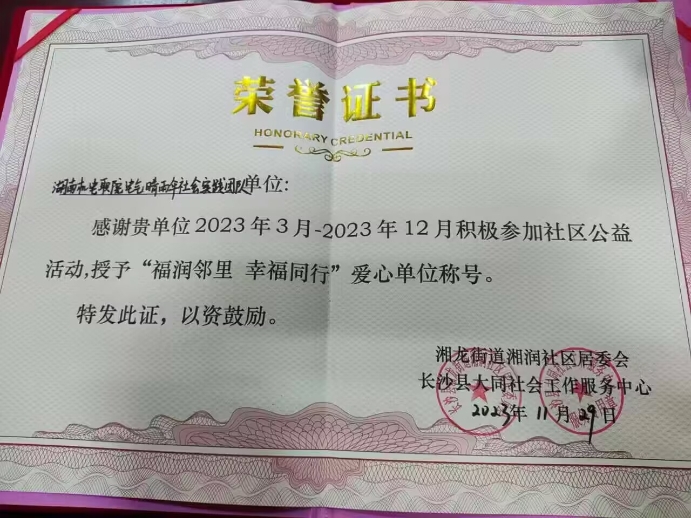 荣誉证书
HONORARY CREDENTIAL
湖南机电职院电气晴雨伞社会实践团队单位:
感谢贵单位2023年3月-2023年12月积极参加社区公益
活动,授予“福润邻里 幸福同行”爱心单位称号。
特发此证，以资鼓励。
湘龙街道湘润社区居委会
长沙县大同社会工作服务中心
2023年11月29日